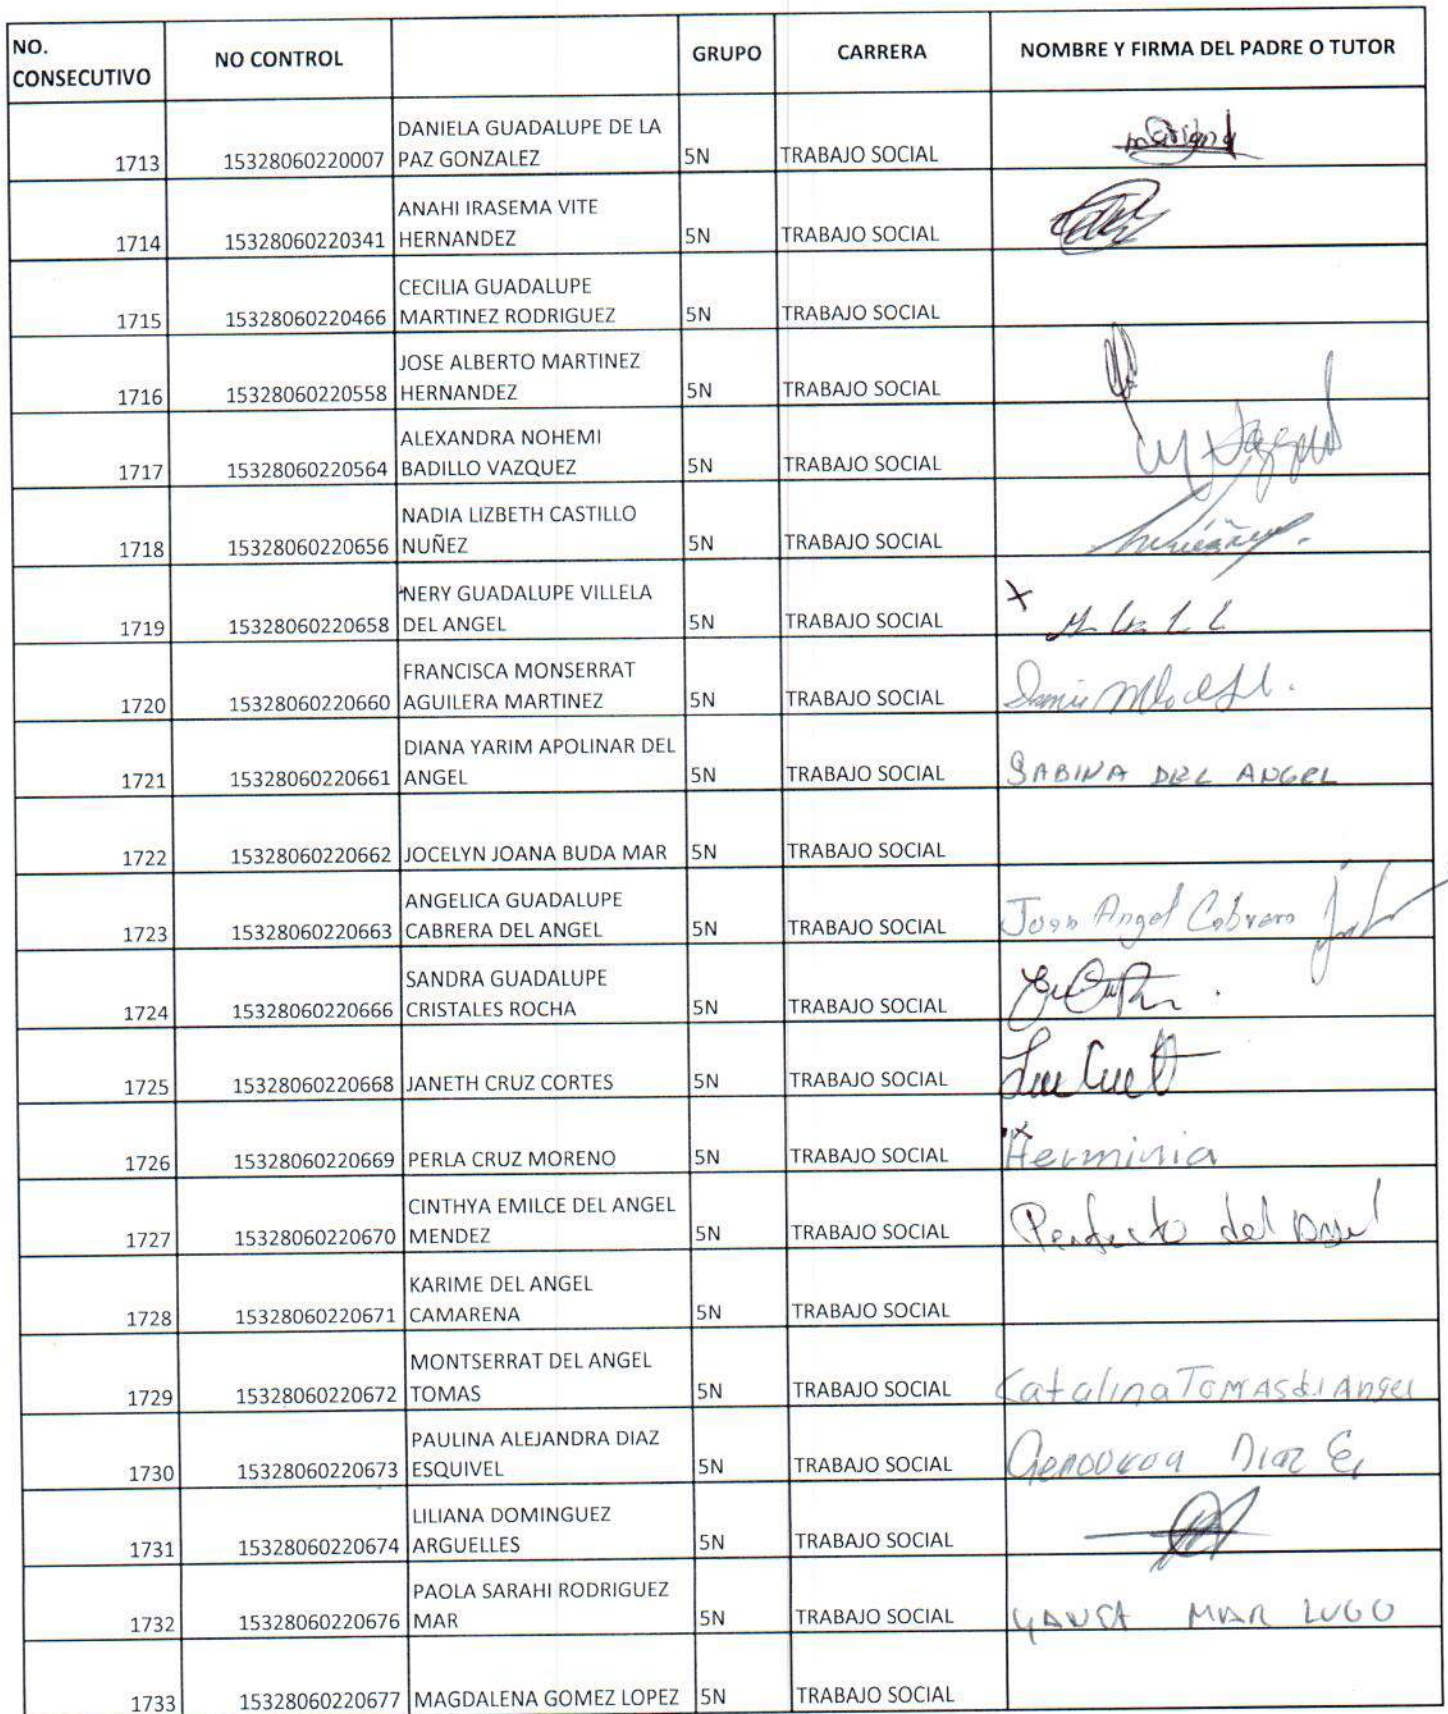 NO. CONSECUTIVO NO CONTROL GRUPO CARRERA NOMBRE Y FIRMA DEL PADRE O TUTOR
1713 15328060220007 DANIELA GUADALUPE DE LA PAZ GONZALEZ 5N TRABAJO SOCIAL
1714 15328060220341 ANAHI IRASEMA VITE HERNANDEZ 5N TRABAJO SOCIAL
1715 15328060220466 CECILIA GUADALUPE MARTINEZ RODRIGUEZ 5N TRABAJO SOCIAL
1716 15328060220558 JOSE ALBERTO MARTINEZ HERNANDEZ 5N TRABAJO SOCIAL
1717 15328060220564 ALEXANDRA NOHEMI BADILLO VAZQUEZ 5N TRABAJO SOCIAL
1718 15328060220656 NADIA LIZBETH CASTILLO NUÑEZ 5N TRABAJO SOCIAL
1719 15328060220658 NERY GUADALUPE VILLELA DEL ANGEL 5N TRABAJO SOCIAL X
1720 15328060220660 FRANCISCA MONSERRAT AGUILERA MARTINEZ 5N TRABAJO SOCIAL
1721 15328060220661 DIANA YARIM APOLINAR DEL ANGEL 5N TRABAJO SOCIAL SABINA DEL ANGEL
1722 15328060220662 JOCELYN JOANA BUDA MAR 5N TRABAJO SOCIAL
1723 15328060220663 ANGELICA GUADALUPE CABRERA DEL ANGEL 5N TRABAJO SOCIAL Juan Angel Cabrera
1724 15328060220666 SANDRA GUADALUPE CRISTALES ROCHA 5N TRABAJO SOCIAL
1725 15328060220668 JANETH CRUZ CORTES 5N TRABAJO SOCIAL
1726 15328060220669 PERLA CRUZ MORENO 5N TRABAJO SOCIAL Herminia
1727 15328060220670 CINTHYA EMILCE DEL ANGEL MENDEZ 5N TRABAJO SOCIAL Perfecto del Angel
1728 15328060220671 KARIME DEL ANGEL CAMARENA 5N TRABAJO SOCIAL
1729 15328060220672 MONTSERRAT DEL ANGEL TOMAS 5N TRABAJO SOCIAL Catalina Tomas del Angel
1730 15328060220673 PAULINA ALEJANDRA DIAZ ESQUIVEL 5N TRABAJO SOCIAL Diaz E.
1731 15328060220674 LILIANA DOMINGUEZ ARGUELLES 5N TRABAJO SOCIAL
1732 15328060220676 PAOLA SARAHI RODRIGUEZ MAR 5N TRABAJO SOCIAL MAR LUGO
1733 15328060220677 MAGDALENA GOMEZ LOPEZ 5N TRABAJO SOCIAL